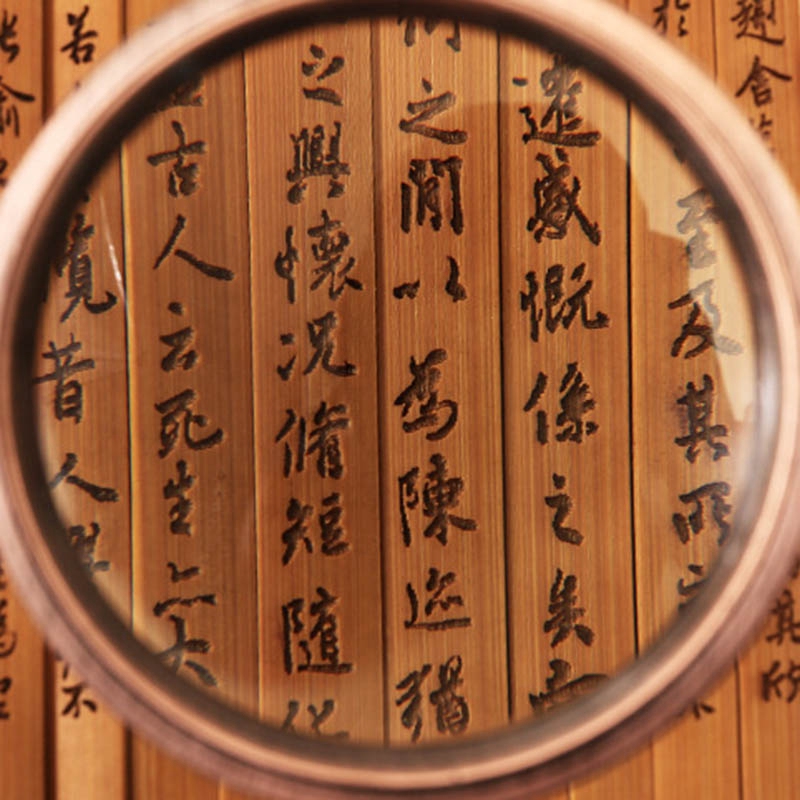 趣舍
其欣
於
至及其所
遷感慨係之矣
之閒以為陳迹猶
之興懷况脩短隨化
古人云死生亦大
若
攬昔人興
不